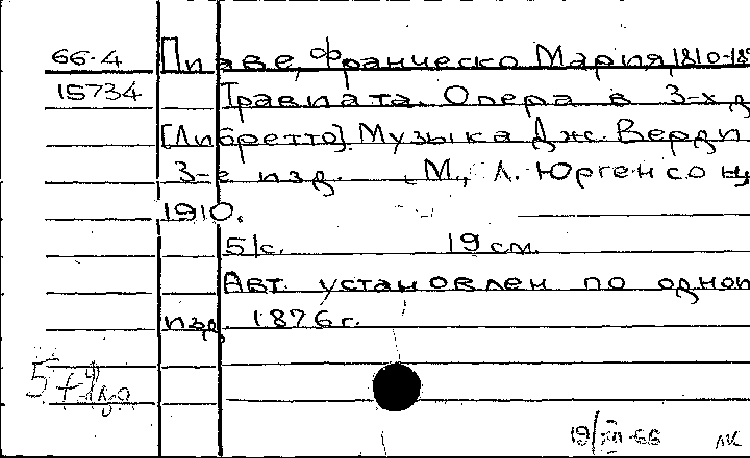 66-4 Пиаве, Франческо Мария, 1810-18
15734 Травиата. Опера в 3-х д
[Либретто]. Музыка Дж. Верди
3-е изд. М., Юргенсон,
1910.
51с. 19 см.
Авт. установлен по одноп
изд. 1876 г.
19/XII-66